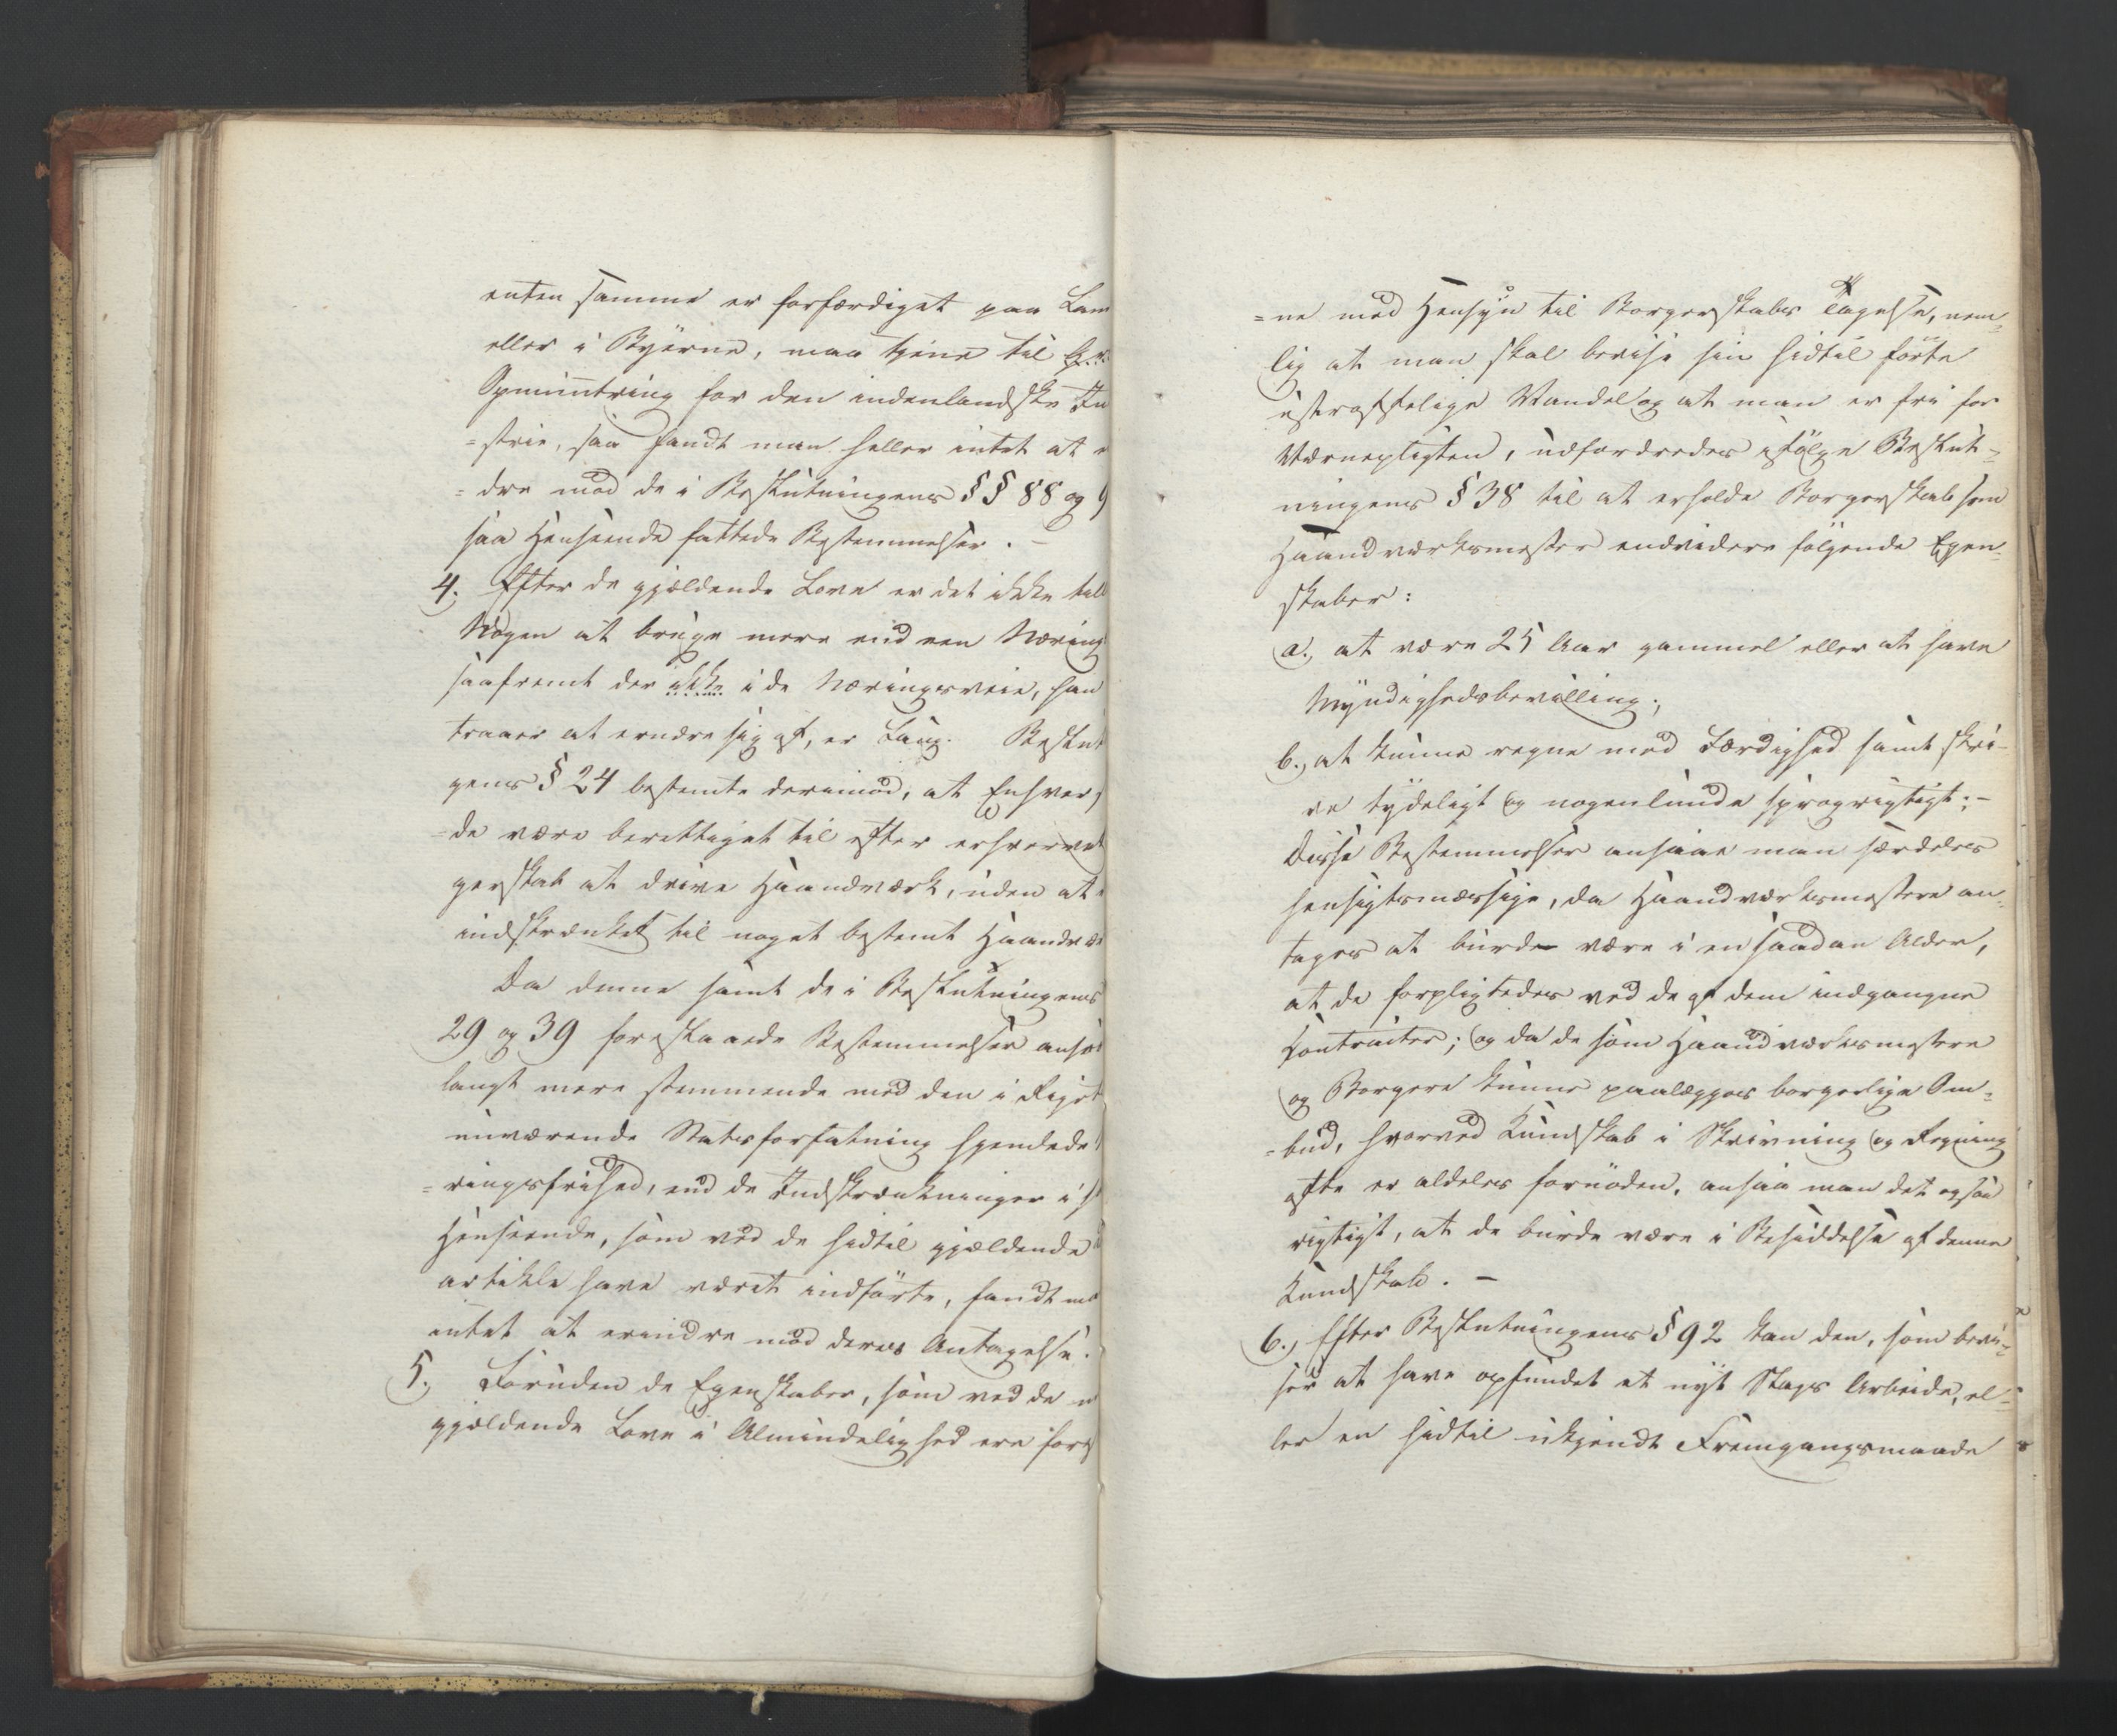 enten samme er forfærdiget paa Lan
eller i Byerne, maa tjene til
Opmuntring for den indenlandske In
=strie, saa fandt man heller intet at e
=dre mod de i Beslutningens §§ 88 og 9
saa Henseende fattede Bestemmelser. -
4. Efter de gjældende Love er det ikke till
Nogen at bruge mere end een Næring
saafremt der ikke i de Næringsveie, han
traaer at ernære sig af, er Laug. Beslut
gens § 24 bestemte derimod, at Enhver,
=de være berettiget til efter erhvervet
gerskab at drive Haandværk, uden at
indskrænket til noget bestemt Haandvæ
Da denne samt de i Beslutningens
29 og 39 foreslaaede Bestemmelser ansees
langt mere stemmende med den i Riget
nuværende Statsforfatning hjemlede
=ringsfrihed, end de Indskrænkninger i s
Henseende, som ved de hidtil gjældende
artikle have været indførte, fandt ma
intet at erindre mod deres Antagelse.
5. Foruden de Egenskaber, som ved de n
gjældende Love i Almindelighed ere fores
=ne med Hensyn til Borgerskabs Tagelse, nem=
lig at man skal bevise sin hidtil førte
ustraffelige Vandel og at man er fri for
Værnepligten, udfordredes ifølge Beslut=
ningens § 38 til at erholde Borgerskab som
Haandværksmester endvidere følgende Egen=
skaber:
a., at være 25 Aar gammel eller at have
Myndighedsbevilling;
b., at kunne regne med Færdighed samt skri-
ve tydeligt og nogenlunde sprogrigtigt; -
Disse Bestemmelser ansaae man særdeles
hensigtsmæssige, da Haandværksmestere an=
tages at burde være i en saadan Alder,
at de forpligtedes ved de af dem indgangne
Contracter; og da de som Haandværksmestere
og Borgere kunne paalægges borgerlige Om=
=bud, hvorved Kundskab i Skrivning og Regning
ofte er aldeles fornøden, ansaa man det ogsaa
rigtigt, at de burde være i Besiddelse af denne
Kundskab. -
6., Efter Beslutningens § 92 kan den, som bevi=
ser at have opfundet et nyt Slags Arbeide, el=
ler en hidtil ukjendt Fremgangsmaade